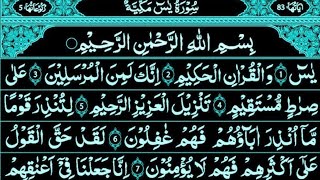 اٰيَاتُهَا 83 سُوْرَةُ يٰسٓ مَكِّيَّةٌ رُكُوْعَاتُهَا 5
بِسْمِ اللّٰهِ الرَّحْمٰنِ الرَّحِيْمِ
يٰسٓ ۝1 وَالْقُرْاٰنِ الْحَكِيْمِ ۝2 اِنَّكَ لَمِنَ الْمُرْسَلِيْنَ ۝3 عَلٰى
صِرَاطٍ مُّسْتَقِيْمٍ ۝4 تَنْزِيْلَ الْعَزِيْزِ الرَّحِيْمِ ۝5 لِتُنْذِرَ قَوْمًا
مَّاۤ اُنْذِرَ اٰبَآؤُهُمْ فَهُمْ غٰفِلُوْنَ ۝6 لَقَدْ حَقَّ الْقَوْلُ
عَلٰۤى اَكْثَرِهِمْ فَهُمْ لَا يُؤْمِنُوْنَ ۝7 اِنَّا جَعَلْنَا فِيْۤ اَعْنَاقِهِمْ